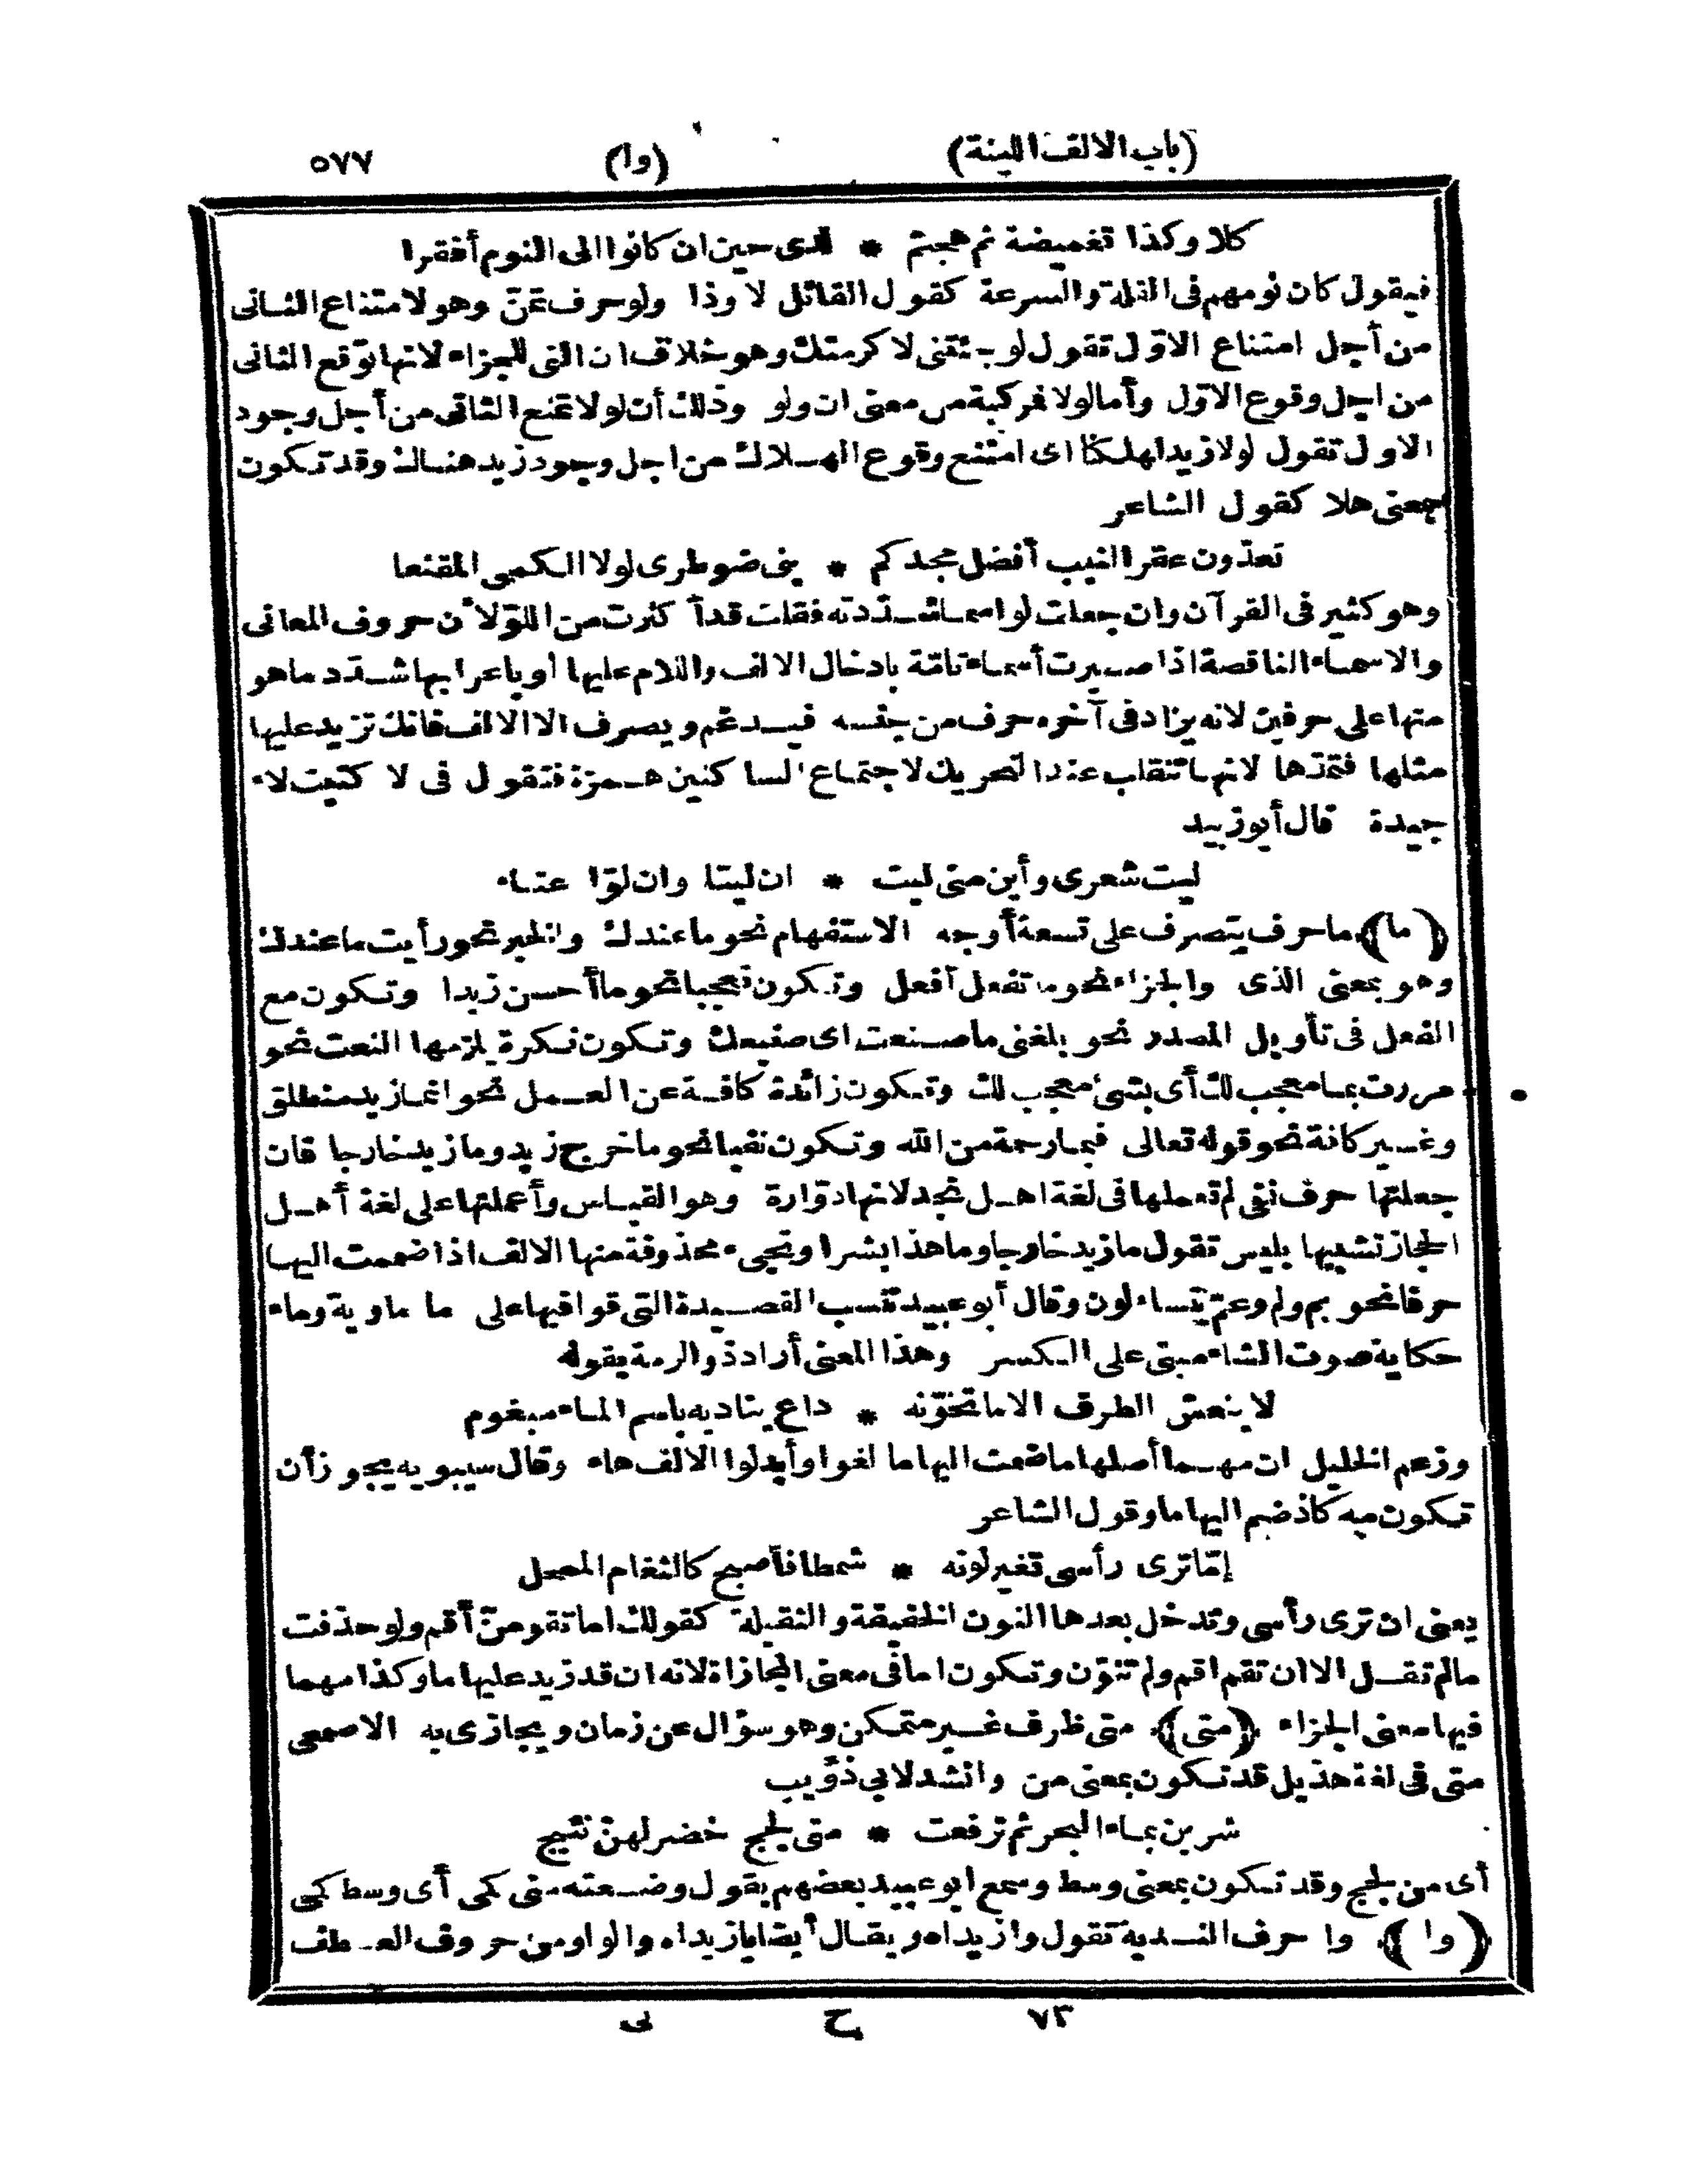 (باب الالف اللينة) (وا) ٥٧٧
كلا وكذا تغميضة ثم هجتم * لدى حين ان كانوا الى النوم أفقرا
فيقول كان نومهم فى القلة والسرعة كقول القائل لا وذا ولو حرف تمنّ وهو لامتناع الثانى
من أجل امتناع الاوّل تقول لو جئتنى لا كرمتك وهو خلاف ان التى للجزاء لانها توقع الثانى
من اجل وقوع الاوّل وأما لولا فمركبة من معنى ان ولو وذلك أن لولا تمنع الثانى من أجل وجود
الاول تقول لولا زيد لهلكنا اى امتنع وقوع الهلاك من اجل وجود زيد هناك وقد تكون
بمعنى هلا كقول الشاعر
تعدّون عقر النيب أفضل مجدكم * بنى ضوطرى لولا الكمى المقنعا
وهو كثير فى القرآن وان جعلت لو اسما شددته فقلت قد أكثرت من اللوّ لأن حروف المعانى
والاسماء الناقصة اذا صيرت أسماء تامّة بادخال الالف واللام عليها أو باعرابها شدّد ما هو
منها على حرفين لانه يزاد فى آخره حرف من جنسه فيدغم ويصرف الا الالف فانك تزيد عليها
مثلها فتمدّها لانها تنقلب عند التحريك لاجتماع الساكنين همزة فتقول فى لا كتبت لاء
جيدة قال أبو زبيد
ليت شعرى وأين منى ليت * ان ليتا وان لوّا عناء
﴿ما﴾ ما حرف يتصرف على تسعة أوجه الاستفهام نحو ما عندك والخبر نحو رأيت ما عندك
وهو بمعنى الذى والجزاء نحو ما تفعل أفعل وتكون تعجبا نحو ما أحسن زيدا وتكون مع
الفعل فى تأويل المصدر نحو بلغنى ما صنعت اى صنيعك وتكون نكرة يلزمها النعت نحو
مررت بما معجب لك أى بشئ معجب لك وتكون زائدة كافة عن العمل نحو انما زيد منطلق
وغير كافة نحو قوله تعالى فبما رحمة من الله وتكون نفيا نحو ما خرج زيد وما زيد خارجا فان
جعلتها حرف نفى لم تعملها فى لغة اهل نجد لانها دوّارة وهو القياس وأعملتها على لغة أهل
الحجاز تشبيها بليس تقول ما زيد خارجا وما هذا بشرا وتجىء محذوفة منها الالف اذا ضممت اليها
حرفا نحو بم ولم وعمّ يتساءلون وقال أبو عبيد تنسب القصيدة التى قوافيها على ما ماوية وماء
حكاية صوت الشاء مبنى على الكسر وهذا المعنى أراد ذو الرمة بقوله
لا ينعش الطرف الا ما تخوّنه * داع يناديه باسم الماء مبغوم
وزعم الخليل ان مهما أصلها ما ضمت اليها ما لغوا وأبدلوا الالف هاء وقال سيبويه يجوز أن
تكون مه كاذ ضم اليها ما وقول الشاعر
إمّا ترى رأسى تغير لونه * شمطا فأصبح كالثغام الممحل
يعنى ان ترى رأسى وتدخل بعدها النون الخفيفة والثقيلة كقولك اما تقومنّ أقم ولو حذفت
ما لم تقل الا ان تقم اقم ولم تنوّن وتكون اما فى معنى المجازاة لانه ان قد زيد عليها ما وكذا مهما
فيها معنى الجزاء ﴿متى﴾ متى ظرف غير متمكن وهو سؤال عن زمان ويجازى به الاصمعى
متى فى لغة هذيل قد تكون بمعنى من وانشد لابى ذؤيب
شربن بماء البحر ثم ترفعت * متى لجج خضر لهنّ نئيج
أى من لجج وقد تكون بمعنى وسط وسمع ابو عبيد بعضهم يقول وضعته متى كمى أى وسط كمى
﴿وا﴾ وا حرف الندبة تقول وا زيداه ويقال أيضا يا زيداه والواو من حروف العطف
٧٣ ح نى